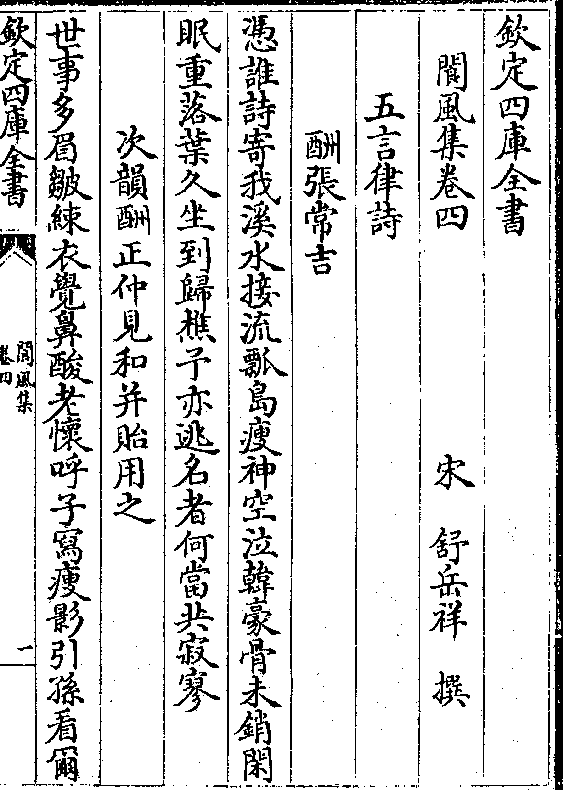 欽定四庫全書
閬風集卷四　宋　舒岳祥　撰
五言律詩
酬張常吉
憑誰詩寄我溪水接流瓢島瘦神空泣韓豪骨未銷閑
眠重落葉久坐到歸樵予亦逃名者何當共寂寥
次韻酬正仲見和并貽用之
世事多眉皺練衣覺鼻酸老懷呼子寫瘦影引孫看爾
欽定四庫全書
閬風集
卷四
一